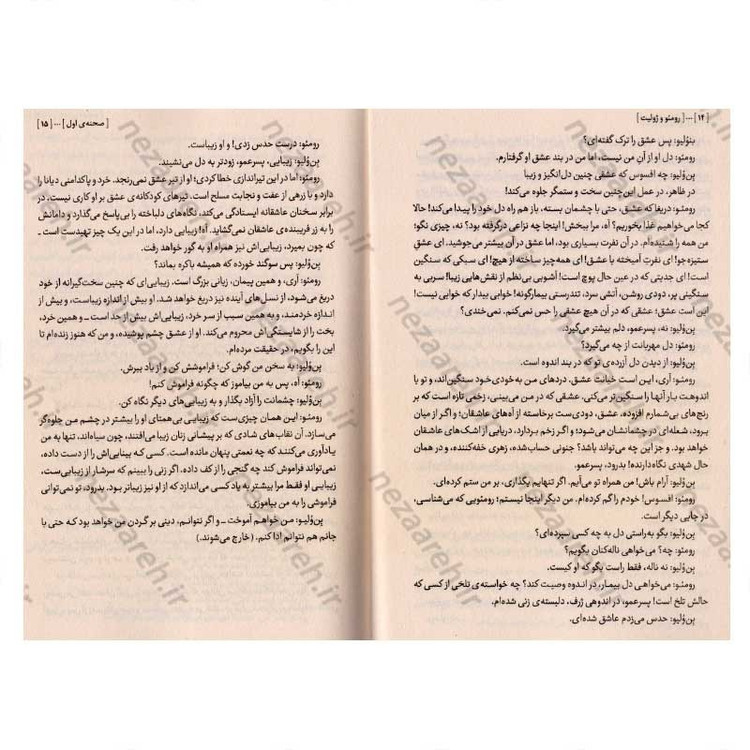 [ ۱۴ ] --- [ رومئو و ژولیت ]
بنوُلیو: پس عشق را ترک گفته‌ای؟
رومئو: دل او از آنِ من نیست، اما من در بند عشق او گرفتارم.
بِن‌وُلیو: چه افسوس که عشقی چنین دل‌انگیز و زیبا
در ظاهر، در عمل این‌چنین سخت و ستمگر جلوه می‌کند!
رومئو: دریغا که عشق، حتی با چشمان بسته، باز هم راه دل خود را پیدا می‌کند! حالا
کجا می‌خواهیم غذا بخوریم؟ آه، مرا ببخش! اینجا چه نزاعی درگرفته بود؟ نه، چیزی نگو؛
من همه را شنیده‌ام. در آن نفرت بسیاری بود، اما عشق در آن بیشتر می‌جوشید. ای عشقِ
ستیزه‌جو! ای نفرتِ آمیخته با عشق! ای همه‌چیزِ ساخته از هیچ! ای سبکی که سنگین
است! ای جدیتی که در عین حال پوچ است! آشوبی بی‌نظم از نقش‌هایی زیبا! سربی به
سنگینی پر، دودی روشن، آتشی سرد، تندرستی بیمارگونه! خوابی بیدار که خوابی نیست!
این است عشق؛ عشقی که در آن هیچ عشقی را حس نمی‌کنم. نمی‌خندی؟
بِن‌وُلیو: نه، پسرعمو، دلم بیشتر می‌گیرد.
رومئو: دل مهربانت از چه می‌گیرد؟
بِن‌وُلیو: از دیدن دل آزرده‌ی تو که در بند اندوه است.
رومئو: آری، این است خیانت عشق. دردهای من به‌خودی‌خود سنگین‌اند، و تو با
اندوهت بار آنها را سنگین‌تر می‌کنی. عشقی که در من می‌بینی، زخمی تازه است که بر
رنج‌های بی‌شمارم افزوده. عشق، دودی‌ست برخاسته از آه‌های عاشقان؛ و اگر از میان
برود، شعله‌ای در چشمانشان می‌شود؛ و اگر زخم بردارد، دریایی از اشک‌های عاشقان
خواهد بود. و جز این چه می‌تواند باشد؟ جنونی حساب‌شده، زهری خفه‌کننده، و در همان
حال شهدی نگاه‌دارنده! بدرود، پسرعمو.
بِن‌وُلیو: آرام باش! من همراه تو می‌آیم. اگر تنهایم بگذاری، بر من ستم کرده‌ای.
رومئو: افسوس! خودم را گم کرده‌ام. من دیگر اینجا نیستم؛ رومئویی که می‌شناسی،
در جایی دیگر است.
بِن‌وُلیو: بگو به‌راستی دل به چه کسی سپرده‌ای؟
رومئو: چه؟ می‌خواهی ناله‌کنان بگویم؟
بِن‌وُلیو: نه ناله، فقط راست بگو که او کیست.
رومئو: می‌خواهی دل بیمار، در اندوه وصیت کند؟ چه خواسته‌ی تلخی از کسی که
حالش تلخ است! پسرعمو، در اندوهی ژرف، دلبسته‌ی زنی شده‌ام.
بِن‌وُلیو: حدس می‌زدم عاشق شده‌ای.
[ صحنه‌ی اول ] --- [ ۱۵ ]
رومئو: درست حدس زدی! و او زیباست.
بِن‌وُلیو: زیبایی، پسرعمو، زودتر به دل می‌نشیند.
رومئو: اما در این تیراندازی خطا کردی؛ او از تیر عشق نمی‌رنجد. خرد و پاکدامنی دیانا را
دارد و با زرهی از عفت و نجابت مسلح است. تیرهای کودکانه‌ی عشق بر او کاری نیست. در
برابر سخنان عاشقانه ایستادگی می‌کند، نگاه‌های دلباخته را بی‌پاسخ می‌گذارد و دامانش
را به زر فریبنده‌ی عاشقان نمی‌گشاید. آه! زیبایی دارد، اما در این یک چیز تهیدست است ــ
که چون بمیرد، زیبایی‌اش نیز همراه او به گور خواهد رفت.
بِن‌وُلیو: پس سوگند خورده که همیشه باکره بماند؟
رومئو: آری، و همین پیمان، زیانی بزرگ است. زیبایی‌ای که چنین سخت‌گیرانه از خود
دریغ می‌شود، از نسل‌های آینده نیز دریغ خواهد شد. او بیش از اندازه زیباست، و بیش از
اندازه خردمند، و به همین سبب از سر خرد، زیبایی‌اش بیش از حد است ــ و همین خرد،
بخت را از شایستگی‌اش محروم می‌کند. او از عشق چشم پوشیده، و من که هنوز زنده‌ام تا
این را بگویم، در حقیقت مرده‌ام.
بِن‌وُلیو: به سخن من گوش کن؛ فراموشش کن و از یاد ببرش.
رومئو: آه، پس به من بیاموز که چگونه فراموش کنم!
بِن‌وُلیو: چشمانت را آزاد بگذار و به زیبایی‌های دیگر نگاه کن.
رومئو: این همان چیزی‌ست که زیبایی بی‌همتای او را بیشتر در چشم من جلوه‌گر
می‌سازد. آن نقاب‌های شادی که بر پیشانی زنان زیبا می‌افتند، چون سیاه‌اند، تنها به من
یادآوری می‌کنند که چه نعمتی پنهان مانده است. کسی که بینایی‌اش را از دست داده،
نمی‌تواند فراموش کند چه گنجی را از کف داده. اگر زنی را ببینم که سرشار از زیبایی‌ست،
زیبایی او فقط مرا بیشتر به یاد کسی می‌اندازد که از او نیز زیباتر بود. بدرود، تو نمی‌توانی
فراموشی را به من بیاموزی.
بِن‌وُلیو: من خواهم آموخت ــ و اگر نتوانم، دینی بر گردن من خواهد بود که حتی با
جانم هم نتوانم ادا کنم. (خارج می‌شوند.)
nezaareh.ir